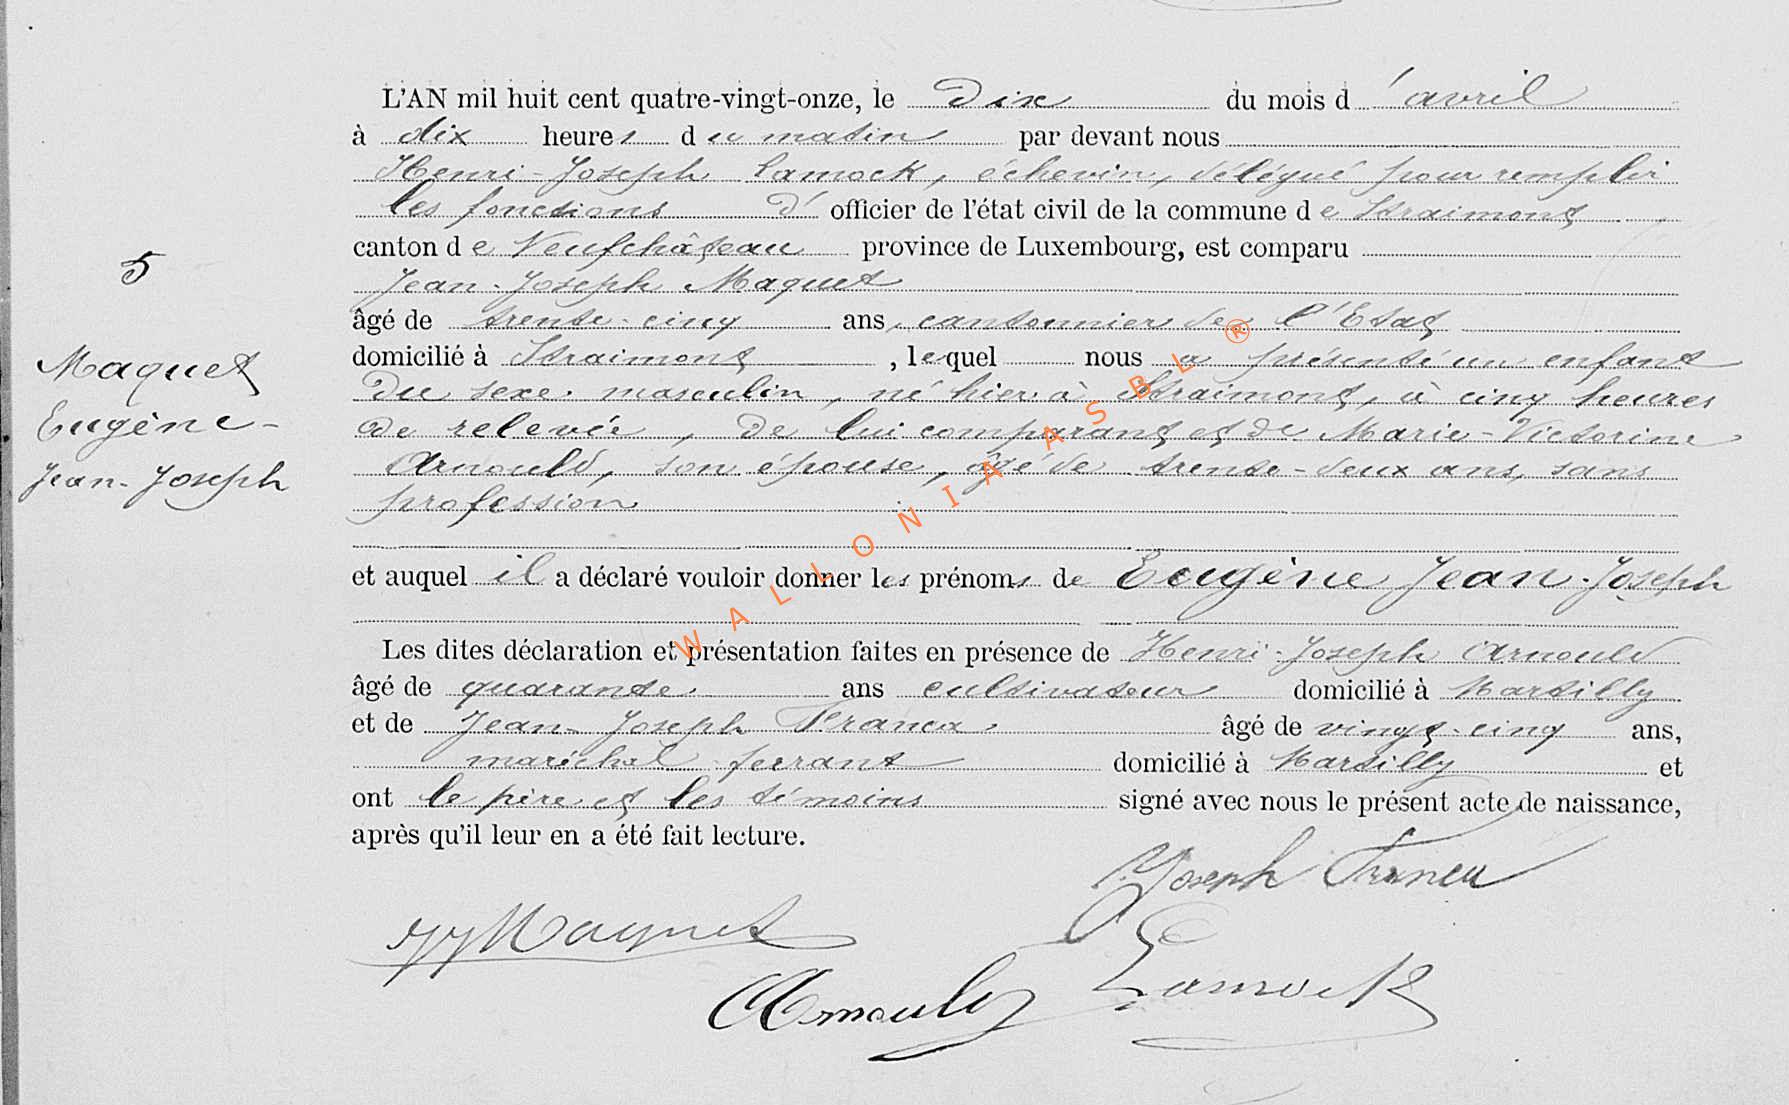 L'AN mil huit cent quatre-vingt-onze, le dix du mois d'avril
à dix heures du matin par devant nous
Henri-Joseph Lamock, échevin, délégué pour remplir
les fonctions d'officier de l'état civil de la commune de Straimont
canton de Neufchâteau province de Luxembourg, est comparu
5
Jean-Joseph Maquet
âgé de trente-cinq ans, cantonnier de l'Etat
Maquet
Eugène-
Jean-Joseph
domicilié à Straimont, lequel nous a présenté un enfant
du sexe masculin, né hier à Straimont, à cinq heures
de relevée, de lui comparant et de Marie-Victorine
Arnould, son épouse, âgé de trente-deux ans, sans
profession
et auquel il a déclaré vouloir donner les prénoms de Eugène Jean-Joseph
Les dites déclaration et présentation faites en présence de Henri-Joseph Arnould
âgé de quarante ans cultivateur domicilié à Martilly
et de Jean-Joseph Franca âgé de vingt-cinq ans,
maréchal ferrant domicilié à Martilly et
ont le père et les témoins signé avec nous le présent acte de naissance,
après qu'il leur en a été fait lecture.
Joseph
JJ Maquet
Arnould
Lamock
WALLONIA ASBL ®